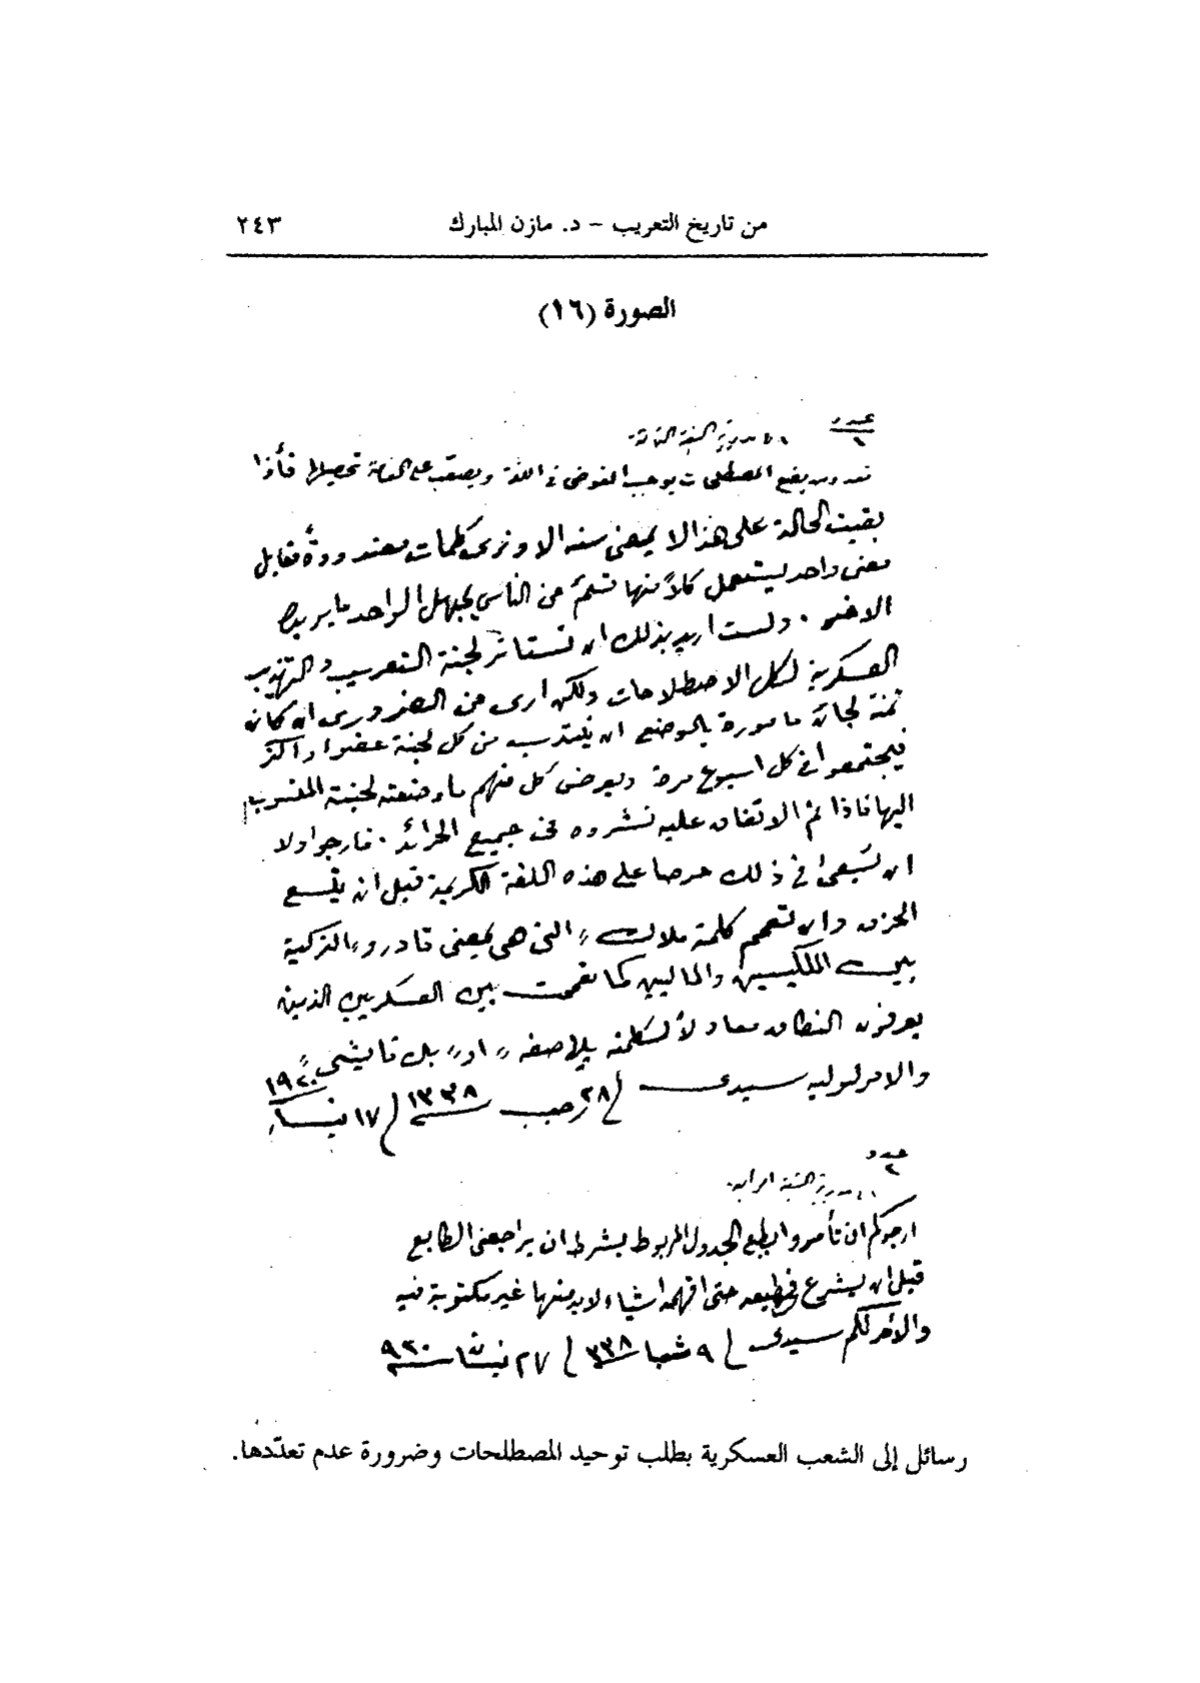 من تاريخ التعريب – د. مازن المبارك ٢٤٣
الصورة (١٦)
عدد
١
مديرية الشعبة الثالثة
تعدد من يضع المصطلحات يوجب الفوضى في اللغة ويصعب على العامة تحصيلها فأذا
بقيت الحالة على هذا لا يمضي سنه الا ونرى كلمات معدودةً تقابل
معنى واحد ليستعمل كلاً منها قسمٌ من الناس يجهل الواحد ما يريده
الاخر . ولست اريد بذلك ان تستأثر لجنة التعريب والتهذيب
العسكرية لكل الاصطلاحات ولكن ارى من الضروري ان كان
ثمة لجان مأمورة بالوضع ان ينتدب من كل لجنة عضوا واكثر
فيجتمعوا في كل اسبوع مرة ويعرض كل منهم ما وضعته لجنته المنسوب
اليها فاذا تم الاتفاق عليه نشروه في جميع الجرائد . فارجو اولا
ان تسعى في ذلك حرصا على هذه اللغة الكريمة قبل ان يتسع
الخرق وان تعمم كلمة ملاك " التي هي بمعنى قادرو " التركية
بين الملكيين والماليين كما تعممت بين العسكريين الذين
يعرفون النطاق معادلاً لكلمة پالاصقه " او " بل قايشي "
والامر لوليه سيدي / ٢٨ رجب ١٣٣٨ / ١٧ نيسان ١٩٢٠
عدد
٢
مديرية الشعبة الرابعة
ارجوكم ان تأمروا بطبع الجدول المربوط بشرط ان يراجعني الطابع
قبل ان يشرع في طبعه حتى افهمه اشياء لا بد منها غير مكتوبة فيه
والأمر لكم سيدي / ٩ شعبان ٣٣٨ / ٢٧ نيسان ٩٢٠
رسائل إلى الشعب العسكرية بطلب توحيد المصطلحات وضرورة عدم تعدّدها.